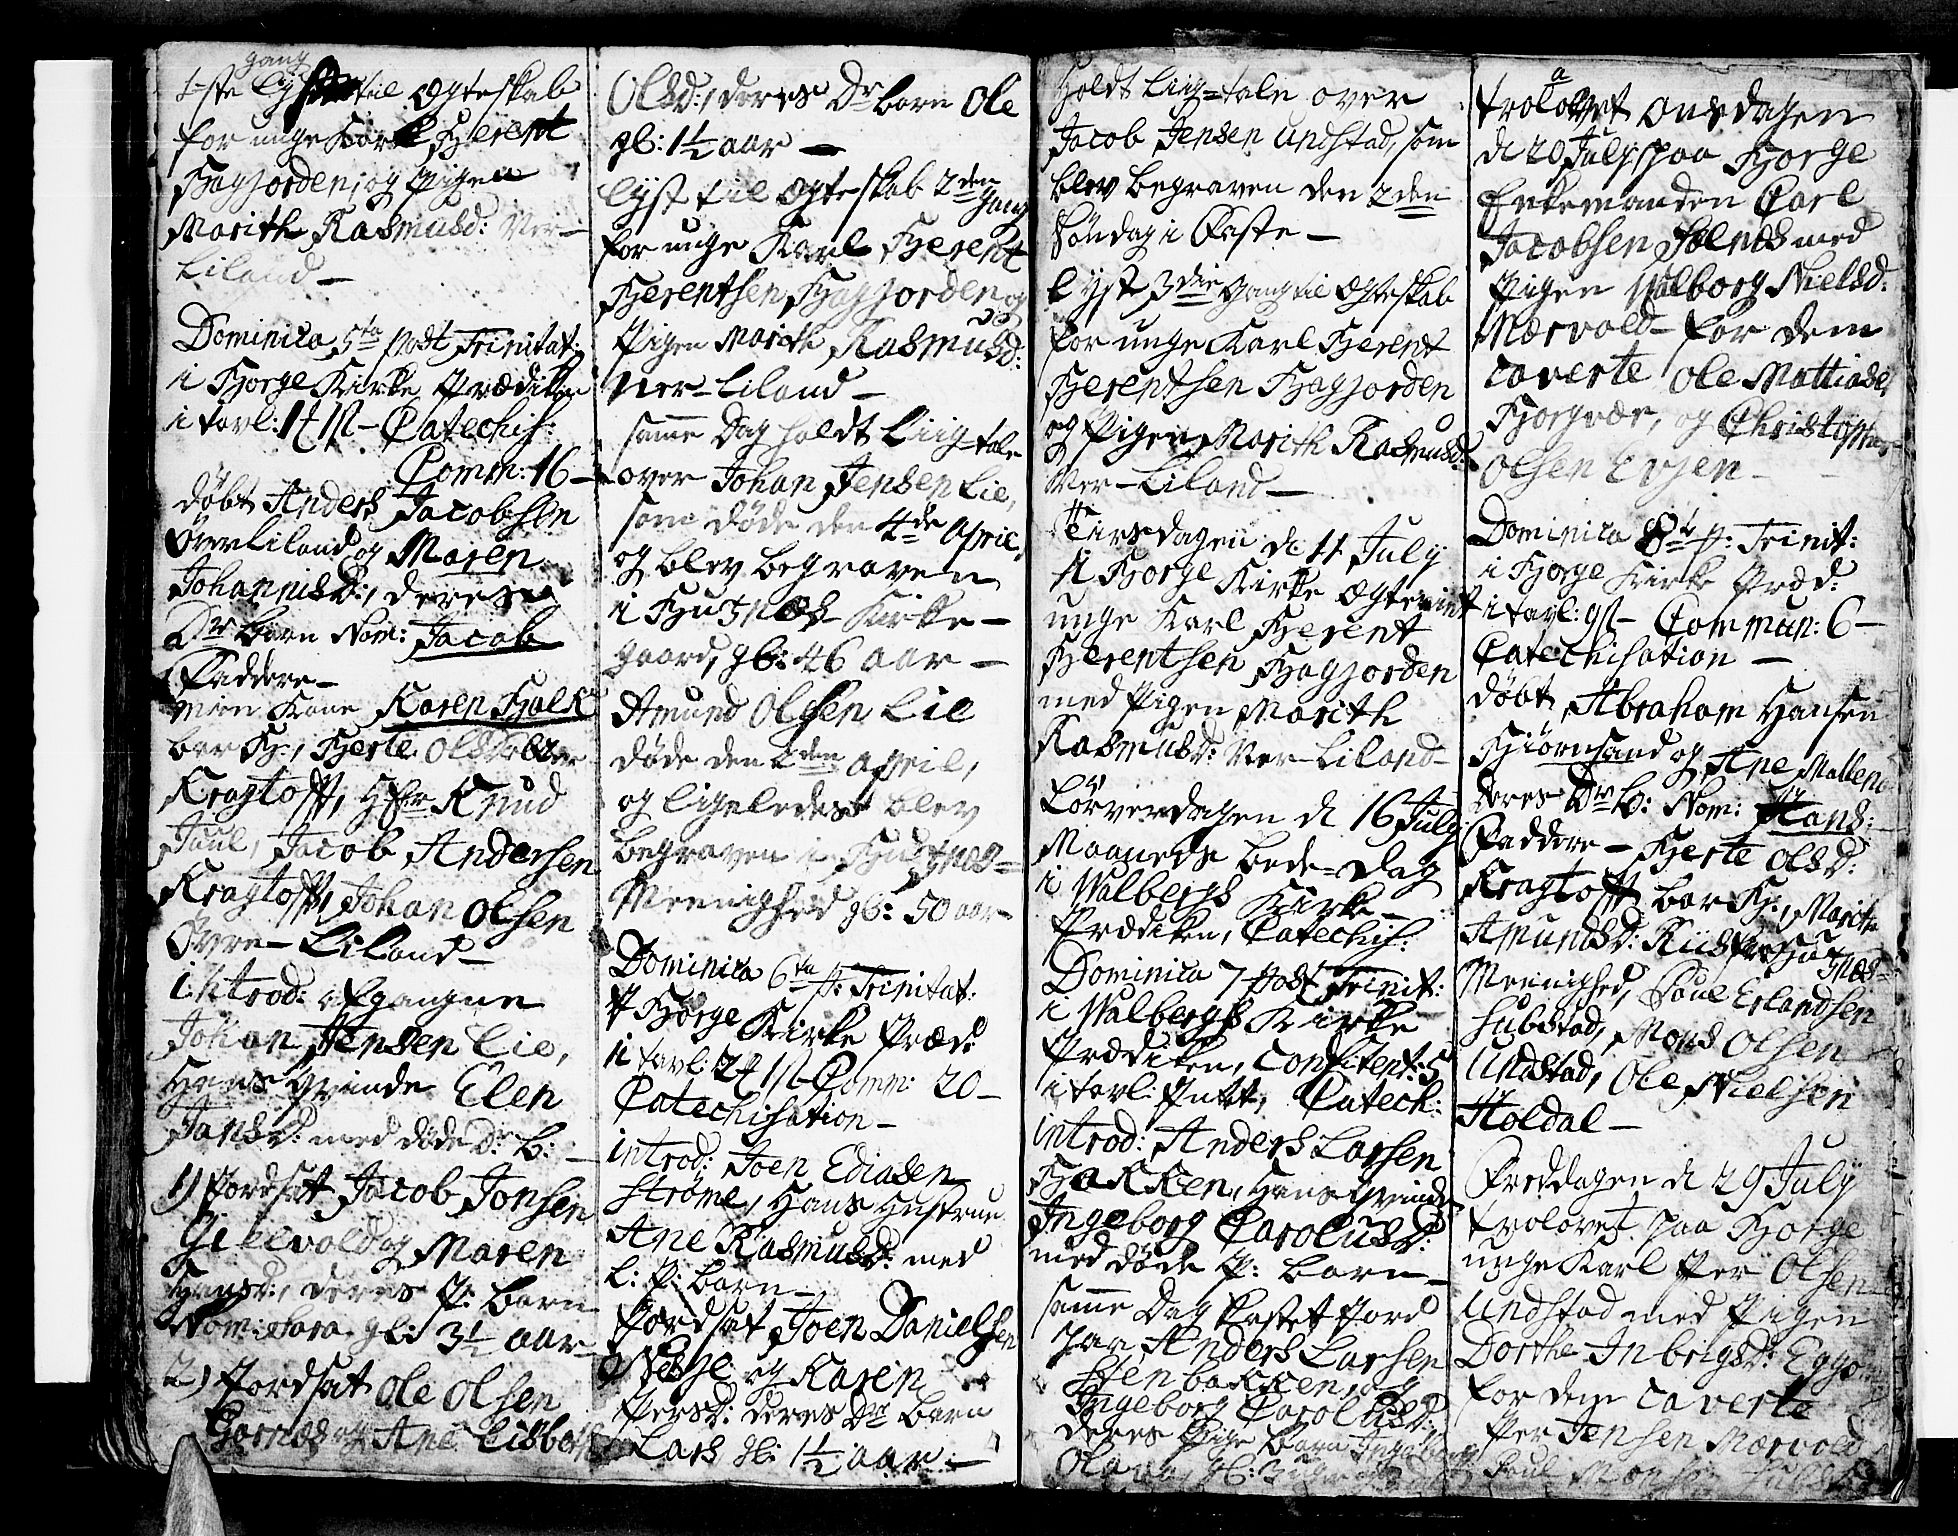 gang
1-ste lyst til Ægteskab
for unge Karl Gerent
Hagjorden, og Pigen
Marith Rasmusd: Ner-
Liland-
Dominica 5ta post Trinitat:
i Borge Kirke Prædiken
i tavl: 1 # 1 ß - Catechis:
Comm: 16-
døbt Anders Jacobsen
ØverLiland og Maren
Johannisd:, deres
Dr barn Nom: Jacob
Faddere-
min Kone Karen Falk
bar H:, Gerte Olsd:
Kragtoft, Hr Knud
Juul, Jacob Andersen
Kragtoft, Johan Olsen
Øvre-Liland-
introd: afgangne
Johan Jensen Lie,
Hans Qvinde Elen
Jansd: med døde Dr: b:-
1) Jordsat Jacob Jonsen
Gimevold og Maren
Hansd:, deres P: barn
Nom: Sara gl: 3½ aar-
2) Jordsat Ole Olsen
og Ane Lisbeth
Olsd:, deres Dr barn Ole
gl: 1½ aar-
lyst til Ægteskab 2den Gang
for unge Karl Gerent
Gerentsen Hagjorden og
Pigen Marith Rasmusd:
Ner-Liland-
samme Dag holdt Liig-tale
over Johan Jensen Lie,
som døde den 4de April,
og blev begraven
i Kirke-
gaard, gl: 46 aar-
Amund Olsen Lie
døde den 2den April,
og ligeledes blev
begraven i
Meenighed gl: 50 aar-
Dominica 6ta p: Trinitat:
i Borge Kirke Præd:
i tavl: 2 # 1 ß - Comm: 20-
Catechisation-
introd: Joen Ediasen
Strøme, Hans Hustrue
Ane Rasmusd: med
l: P: barn-
Jordsat Joen Danielsen
og Karen
Persd: deres Dr barn
Lars gl: 1½ aar-
Holdt Liig-tale over
Jacob Jensen Undstad, som
blev begraven den 2den
Søndag i Faste-
lyst 3die gang til Ægteskab
for unge Karl Gerent
Gerentsen Hagjorden
og Pigen Marith Rasmusd:
Ner-Liland-
Tirsdagen d: 11 July
i Borge Kirke Ægteviet
unge Karl Gerent
Gerentsen Hagjorden
med Pigen Marith
Rasmusd: Ner-Liland-
Løverdagen d 16 July
Maaneds bede-Dag
i Walbergs Kirke-
Prædiken, Catechis:
Dominica 7 post Trinit:
i Walbergs Kirke
Prædiken, Confitent: 5
i tavl: Catech:
introd: Anders Larsen
Hans Qvinde
Ingeborg Carolusd:
med døde P: barn-
samme Dag kastet Jord
paa Anders Larsen
Stenbakken, og
Ingeborg Carolusd:
deres Pige barn Ingeborg
trolovet Onsdagen
d: 20 July paa Borge
Enkemanden Carl
Jacobsen med
Pigen Walborg Nielsd:
Mærvold- for dem
caverte Ole Mattiasen
Borgvær, og Christopher
Olsen Evjen-
Dominica 8 p: Trinit:
i Borge Kirke Præd:
i tavl: 9 ß - Commun: 6-
Catechisation-
døbt Abraham Hansen
og Ane
deres Dr b: Nom: Hans:
Faddere- Gerte Olsd:
Kragtoft bar H:, Marith
Amundsd:
Meenighed, Poul Erlandsen
Substad, Mons Olsen
Undstad, Ole Nielsen
Holdal-
Fredagen d 29 July
trolovet paa Borge
unge Karl Per Olsen
Undstad med Pigen
Dorthe Inbrigsd: Eggum
for dem caverte
Per Jensen Mærvold